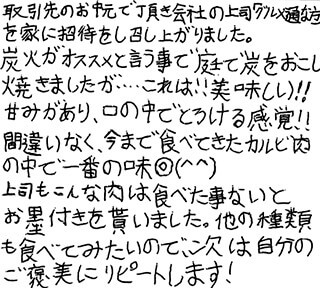 取引先のお中元で頂き会社の上司グルメ通な方
を家に招待をし召し上がりました。
炭火がオススメと言う事で庭で炭をおこし
焼きましたが....これは!!美味しい!!
甘みがあり、口の中でとろける感覚!!
間違いなく、今まで食べてきたカルビ肉
の中で一番の味◎(^^)
上司もこんな肉は食べた事ないと
お墨付きを貰いました。他の種類
も食べてみたいので、次は自分の
ご褒美にリピートします!